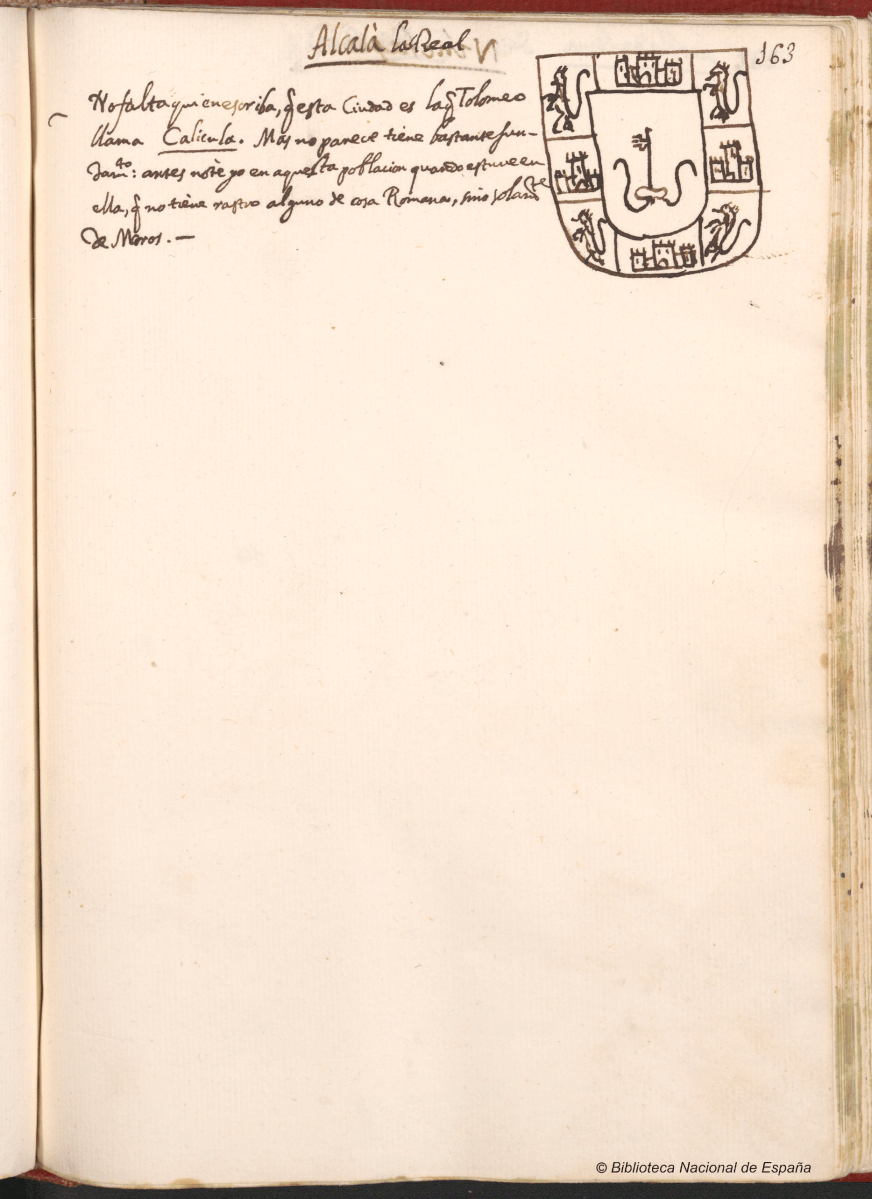 Alcalà la Real
163
No falta quien escriba, q̃ esta Ciudad es la q̃ Tolomeo
llama Calicula. Mas no parece tiene bastante fun-
damᵗᵒ: antes notè yo en aquesta poblacion quando estuve en
ella, q̃ no tiene rastro alguno de cosa Romana, sino solamᵗᵉ
de Moros. —
© Biblioteca Nacional de España